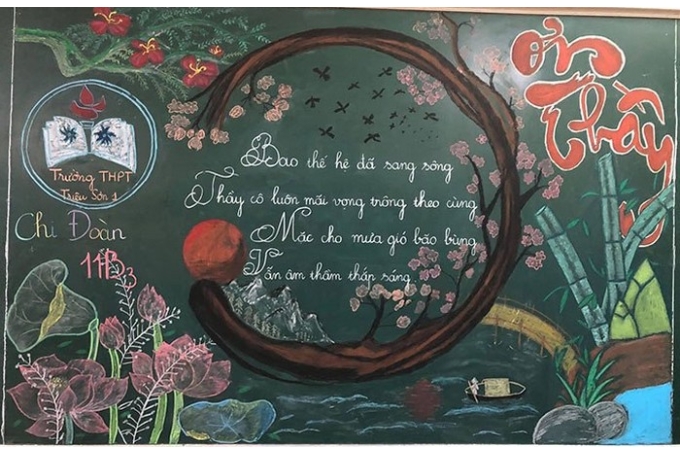 Trường THPT
Triệu Sơn 1
Chi Đoàn
11B3
Bao thế hệ đã sang sông
Thầy cô luôn mãi vọng trông theo cùng
Mặc cho mưa gió bão bùng
Vẫn âm thầm thắp sáng
ơn
Thầy